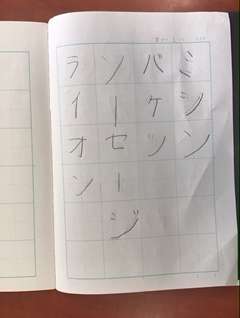 ミシン
バケツ
ソーセージ
ライオン